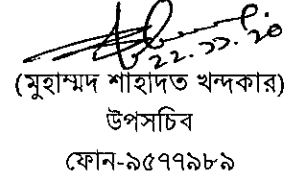 ২২.১১.২০
(মুহাম্মদ শাহাদত খন্দকার)
উপসচিব
ফোন-৯৫৭৭৯৮৯